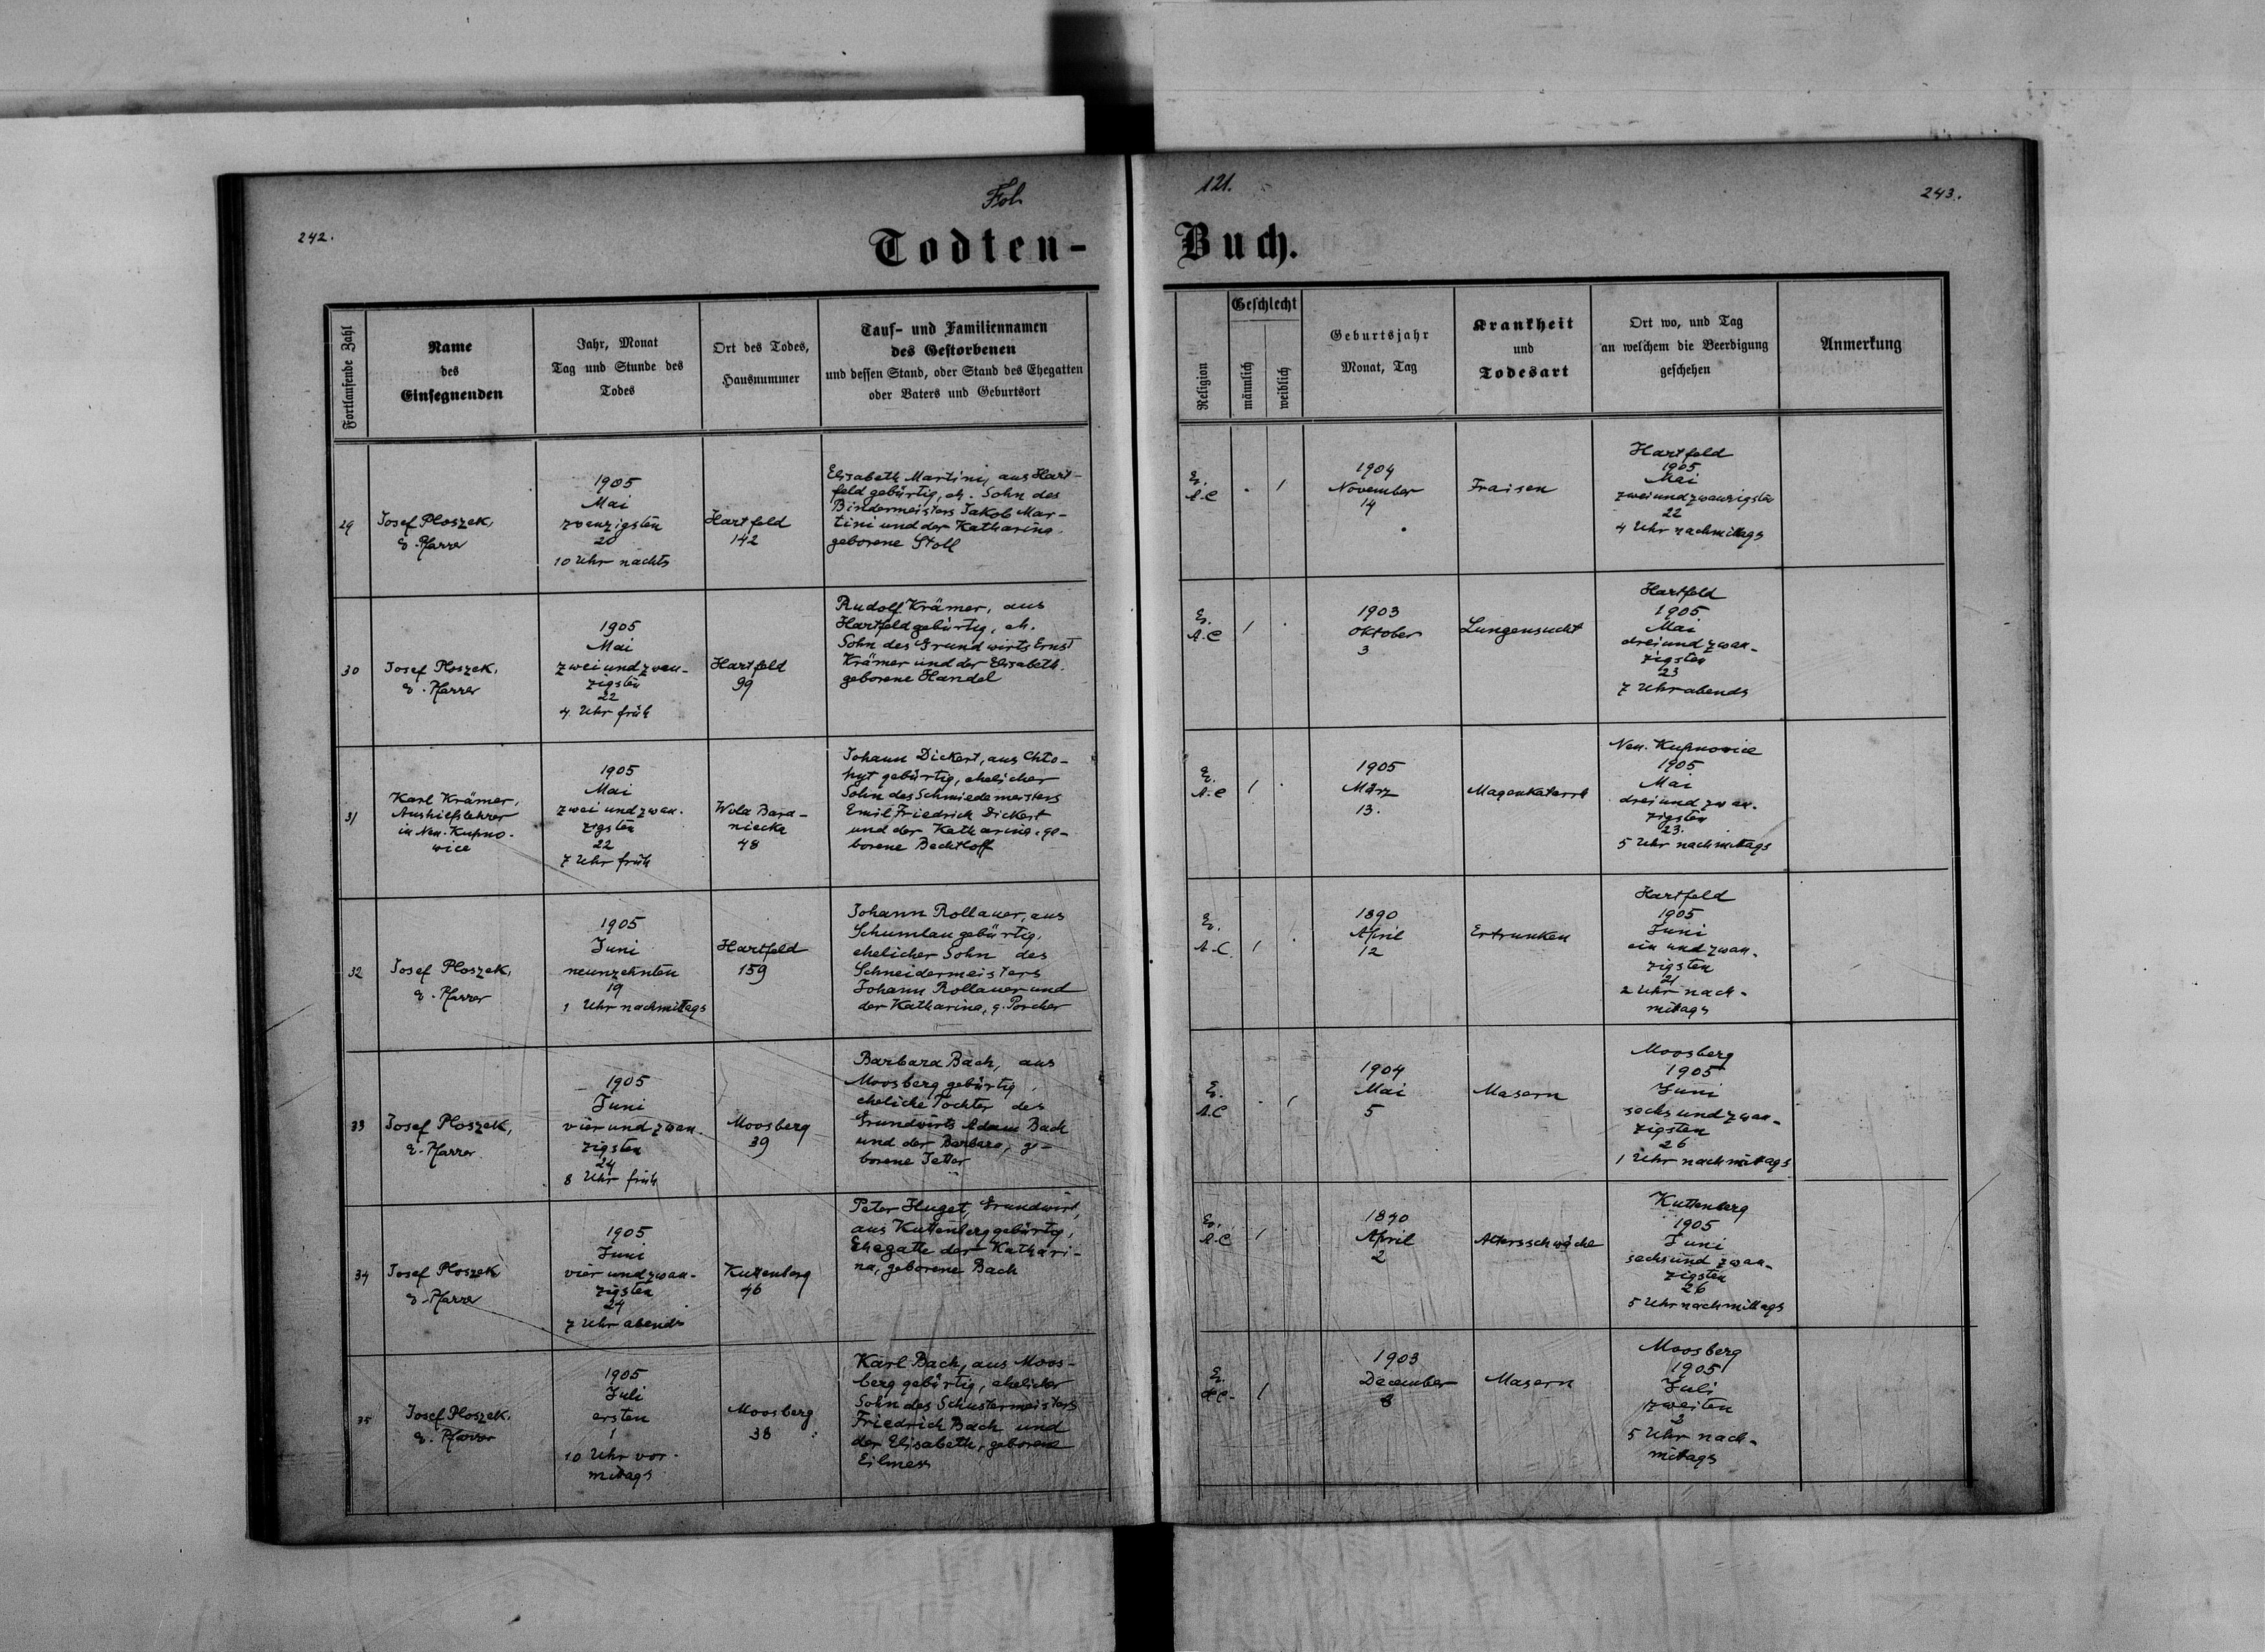 Fol. 121.
242. 243.
Todten- Buch.
Fortlaufende Zahl
Name
des
Einsegnenden
Jahr, Monat
Tag und Stunde des
Todes
Ort des Todes,
Hausnummer
Tauf- und Familiennamen
des Gestorbenen
und dessen Stand, oder Stand des Ehegatten
oder Vaters und Geburtsort
Religion
Geschlecht
männlich
weiblich
Geburtsjahr
Monat, Tag
Krankheit
und
Todesart
Ort wo, und Tag
an welchem die Beerdigung
geschehen
Anmerkung
29
Josef Ploszek,
E. Pfarrer
1905
Mai
zwanzigsten
20
10 Uhr nachts
Hartfeld
142
Elisabeth Martini, aus Hart-
feld gebürtig, eh. Sohn des
Bindermeisters Jakob Mar-
tini und der Katharina
geborene Stoll
E.
A.C
. /
1904
November
14
Fraisen
Hartfeld
1905
Mai
zweiundzwanzigsten
22
4 Uhr nachmittags
30
Josef Ploszek,
E. Pfarrer
1905
Mai
zweiundzwan-
zigsten
22
4 Uhr früh
Hartfeld
99
Rudolf Krämer, aus
Hartfeld gebürtig, eh.
Sohn des Grundwirts Ernst
Krämer und der Elisabeth
geborene Handel
E.
A.C
/ .
1903
Oktober
3
Lungensucht
Hartfeld
1905
Mai
dreiundzwan-
zigsten
23
7 Uhr abends
31
Karl Krämer,
Aushilfslehrer
in Neu-Kupno-
wice
1905
Mai
zweiundzwan-
zigsten
22
7 Uhr früh
Wola Bara-
niecka
48
Johann Dickert, aus Chło-
pyt gebürtig, ehelicher
Sohn des Schmiedemeisters
Emil Friedrich Dickert
und der Katharina, ge-
borene Bechtloff
E.
A.C
/ .
1905
März
13.
Magenkatarrh
Neu-Kupnowice
1905
Mai
dreiundzwan-
zigsten
23.
5 Uhr nachmittags
32
Josef Ploszek,
E. Pfarrer
1905
Juni
neunzehnten
19
1 Uhr nachmittags
Hartfeld
159
Johann Rollauer, aus
Schumlau gebürtig,
ehelicher Sohn des
Schneidermeisters
Johann Rollauer und
der Katharina, g. Porcher
E.
A.C
/ .
1890
April
12
Ertrunken
Hartfeld
1905
Juni
einundzwan-
zigsten
21
2 Uhr nach-
mittags
33
Josef Ploszek,
E. Pfarrer
1905
Juni
vierundzwan-
zigsten
24
8 Uhr früh
Moosberg
39
Barbara Bach, aus
Moosberg gebürtig,
eheliche Tochter des
Grundwirts Adam Bach
und der Barbara, ge-
borene Jetter
E.
A.C
. /
1904
Mai
5
Masern
Moosberg
1905
Juni
sechsundzwan-
zigsten
26
1 Uhr nachmittags
34
Josef Ploszek
E. Pfarrer
1905
Juni
vierundzwan-
zigsten
24
7 Uhr abends
Kuttenberg
46
Peter Huget, Grundwirt,
aus Kuttenberg gebürtig,
Ehegatte der Kathari-
na, geborene Bach
E.
A.C
/ .
1840
April
2
Altersschwäche
Kuttenberg
1905
Juni
sechsundzwan-
zigsten
26
5 Uhr nachmittags
35
Josef Ploszek,
E. Pfarrer
1905
Juli
ersten
1
10 Uhr vor-
mittags
Moosberg
38
Karl Bach, aus Moos-
berg gebürtig, ehelicher
Sohn des Schustermeisters
Friedrich Bach und
der Elisabeth, geborene
Eilmes
E.
A.C.
/
1903
December
8
Masern
Moosberg
1905
Juli
zweiten
2
5 Uhr nach-
mittags